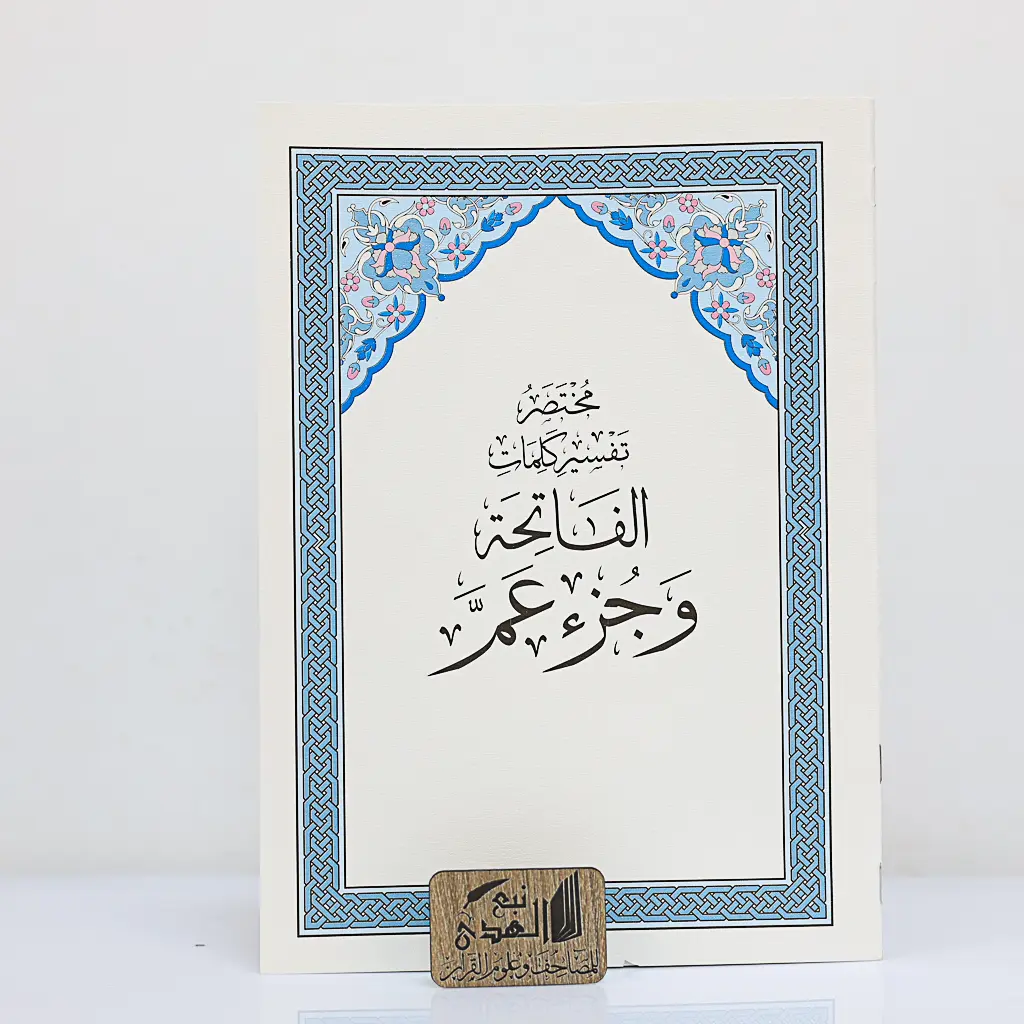 مُخْتَصَرُ
تَفْسِيرِ كَلِمَاتِ
الفَاتِحَة
وَجُزْء عَمَّ
نبع
الهدى
للمصاحف وعلوم القرآن